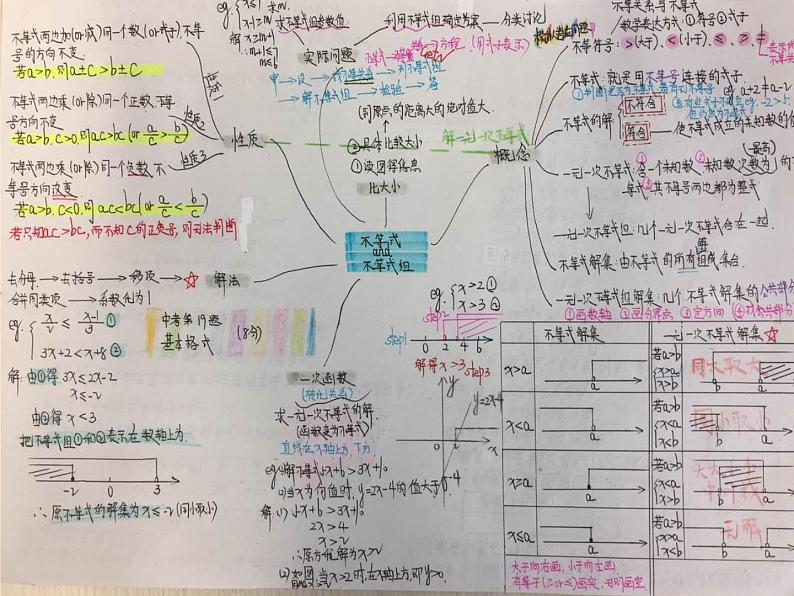 不等式两边加(or减)同一个数(or式子),不等
号的方向不变.
若a>b,则a±c>b±c
不等式两边乘(or除)同一个正数,不等
号方向不变
若a>b,c>0,则ac>bc(or a/c > b/c)
不等式两边乘(or除)同一个负数,不
等号方向改变.
若a>b,c<0,则ac<bc(or a/c < b/c)
若只知ac>bc,而不知c的正负号,则无法判断
性质1
性质2
性质3
性质
求不等式组参数值
利用不等式组确定方案——分类讨论
实际问题
——解不等式组——检验——答
同原点的距离大的绝对值大.
②具体比较大小
①读图得信息
比大小
解一元一次不等式
概念
不等关系与不等式
数学表达方式:①符号②式子
不等符号: >(大于)、<(小于)、≤、≥、≠
不等式:就是用不等号连接的式子.
不等式的解
不符合
符合
使不等式成立的未知数的值
(最高)
一元一次不等式:含一个未知数,未知数次数为1的不
等式,其不等号两边都为整式
一元一次不等式组:几个一元一次不等式合在一起.
不等式解集:由不等式的所有解组成集合.
一元一次不等式组解集:几个不等式解集的公共部分
①画数轴 ②画分界点 ③定方向 ④找公共部分
不等式
and
不等式组
解法
去分母→去括号→移项→☆
合并同类项→系数化为1
②
3x+2<x+8②
解: 由①得 3x≤2x-2
x≤-2
由②得 x<3
把不等式组①和②表示在数轴上为.
-2 3
∴原不等式的解集为x≤-2(同小取小)
中考第19题
基本格式
(8分)
一次函数
(转化关系)
求一元一次不等式的解
(函数变为不等式)
直线在x轴上方、下方
(1)当x为何值时,y=2x-4的值大于0
2x>4
x>2
(2)如图,当x>2时,在x轴上方,即y>0.
eg. { x>2①
x>3②
step1
step2
0 2 4 6
解得x>3
step3
y
y=2x-4
0 2 x
-4
不等式解集
一元一次不等式组解集☆
x>a
a
x<a
a
x≥a
a
x≤a
a
若a>b
{x>a
x>b
同大取大
b a
若a>b
{x<a
x<b
同小取小
b a
若a>b
{x<a
x>b
b a
若a>b
{x>a
x<b
无解
b a
大于向右画,小于向左画.
有等于(≥or≤)画实,无则画空.